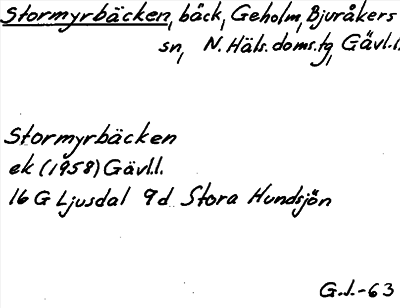 Stormyrbäcken, bäck, Geholm, Bjuråkers
sn, N. Häls. doms.tg, Gävl.l.
Stormyrbäcken
ek (1958) Gävl.l.
16 G Ljusdal 9d Stora Hundsjön
G.J.-63